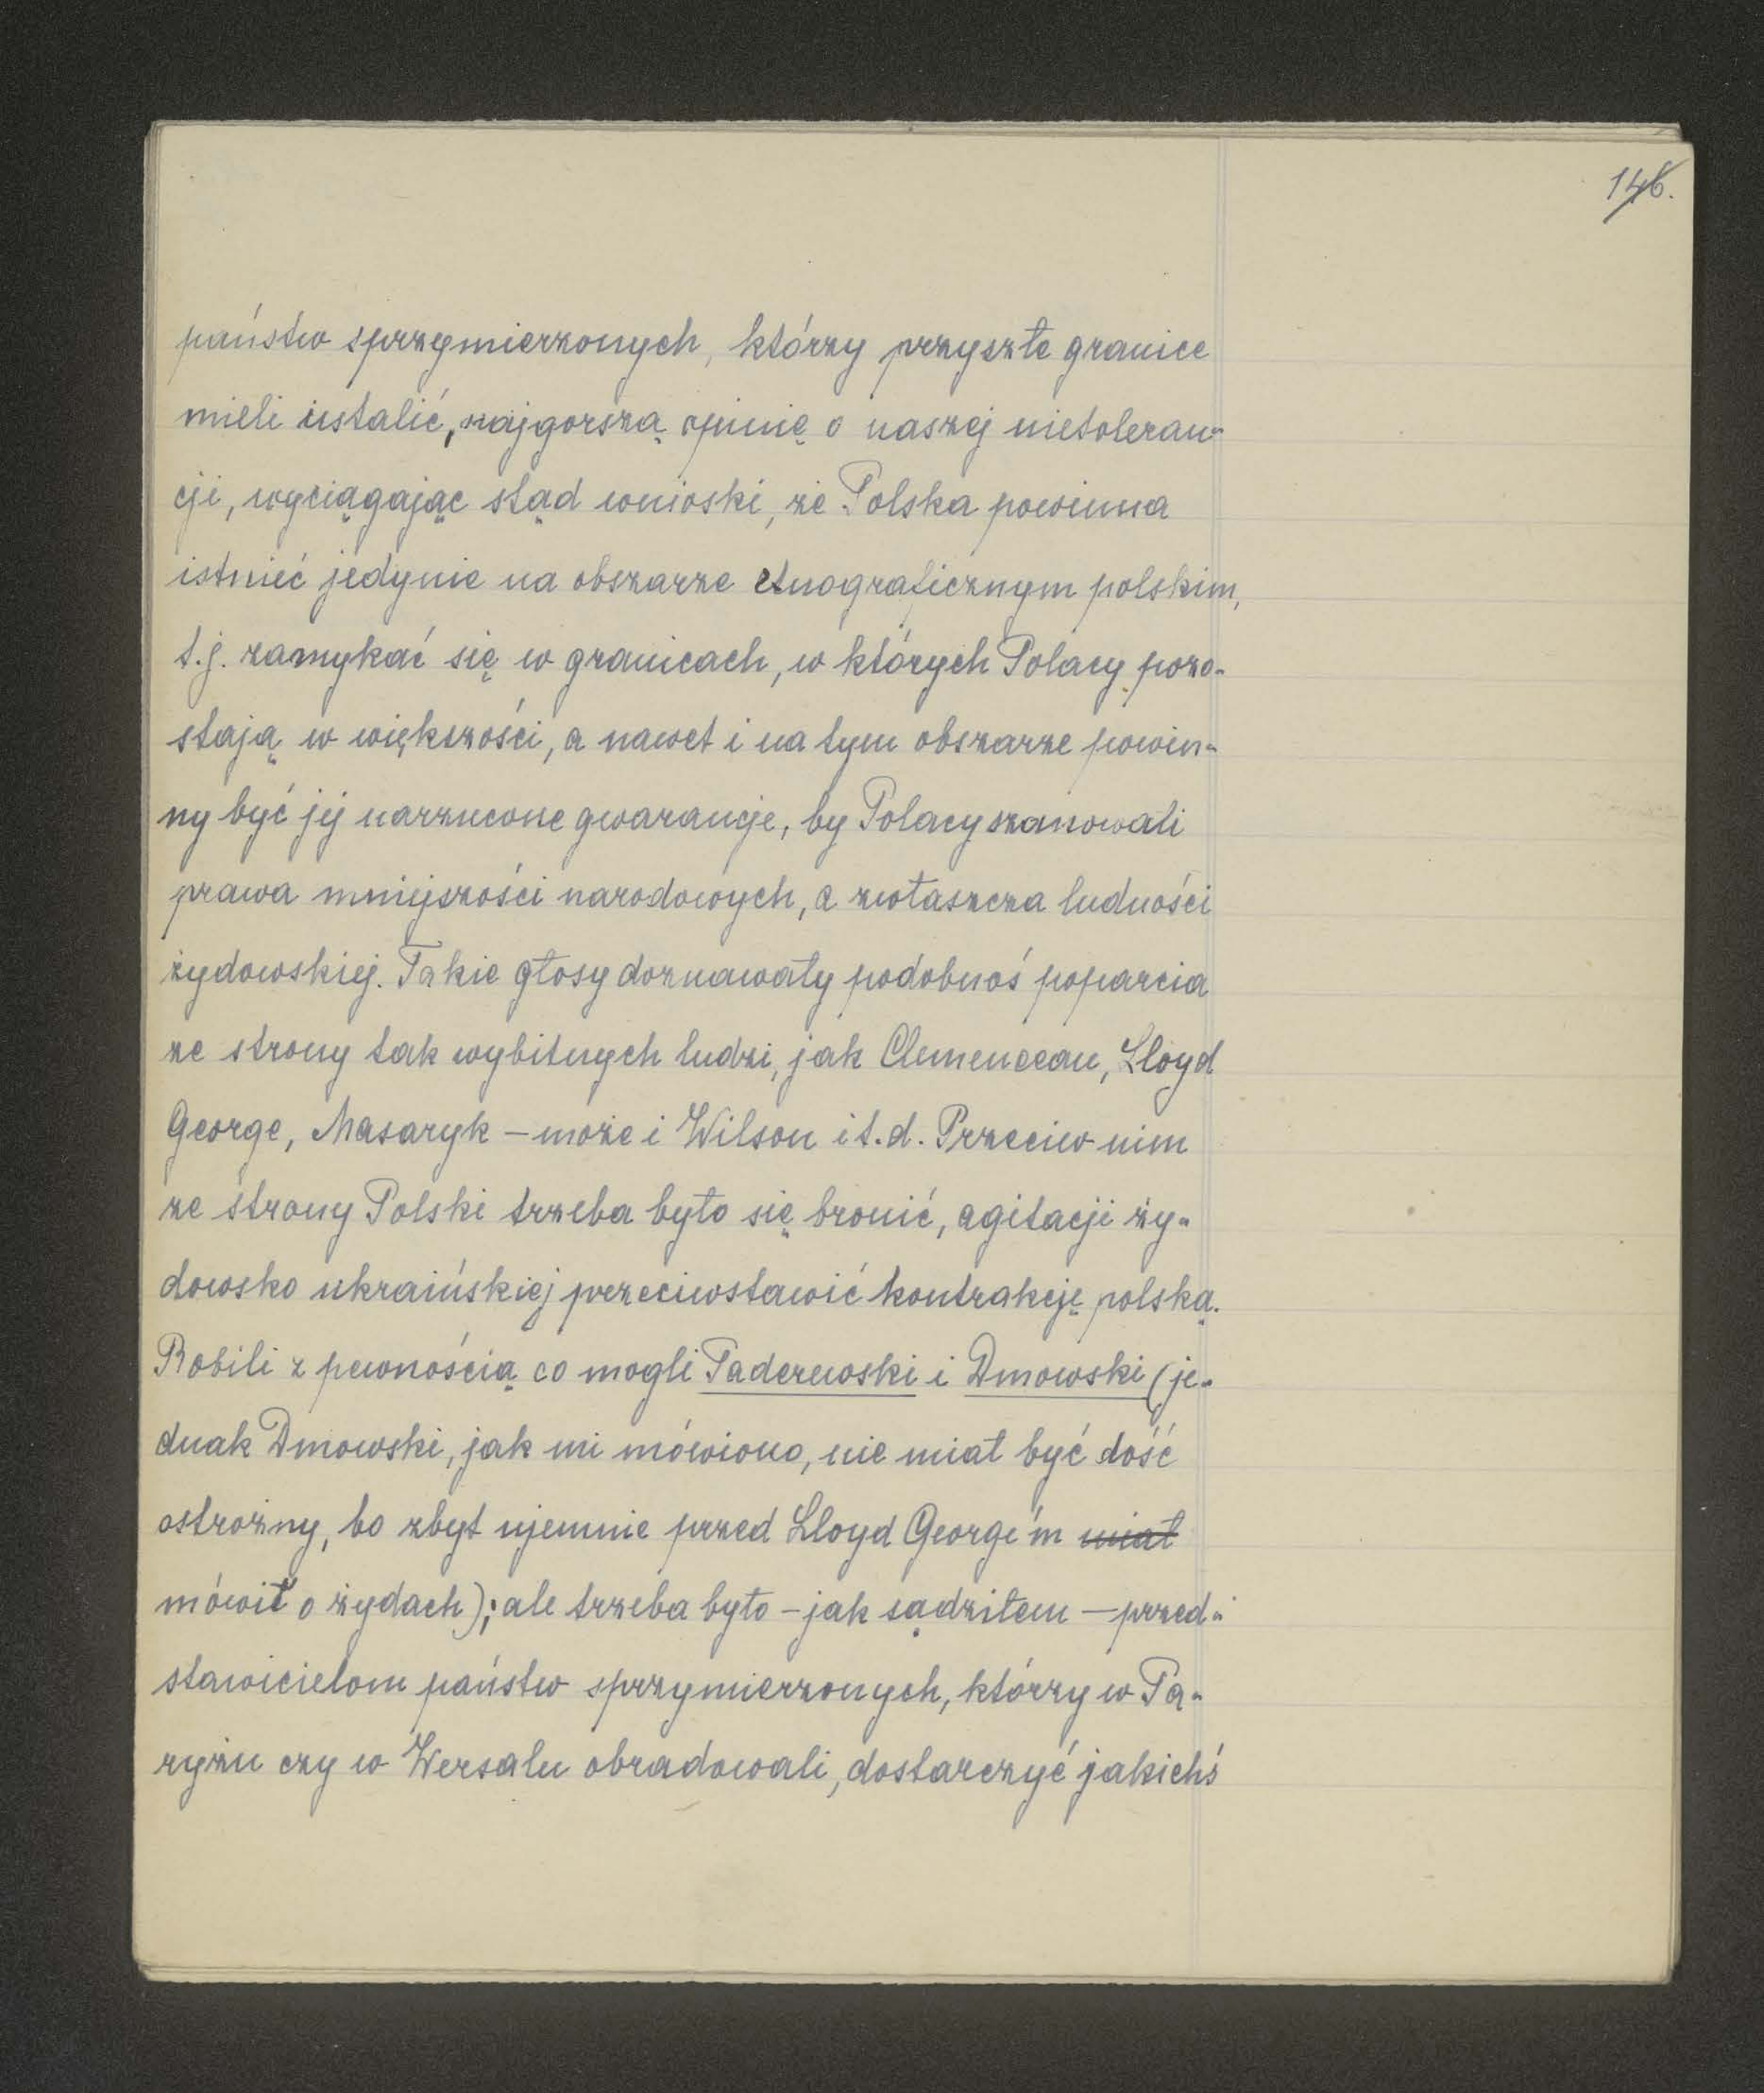 146.
państw sprzymierzonych, którzy przyszłe granice
mieli ustalić, najgorszą opinię o naszej nietoleran-
cji, wyciągając stąd wnioski, że Polska powinna
istnieć jedynie na obszarze etnograficznym polskim,
t.j. zamykać się w granicach, w których Polacy pozo-
stają w większości, a nawet i na tym obszarze powin-
ny być jej narzucone gwarancje, by Polacy szanowali
prawa mniejszości narodowych, a zwłaszcza ludności
żydowskiej. Takie głosy doznawały podobnoś poparcia
ze strony tak wybitnych ludzi, jak Clemenceau, Lloyd
George, Masaryk – może i Wilson i t.d. Przeciw nim
ze strony Polski trzeba było się bronić, agitacji ży-
dowsko ukraińskiej przeciwstawić kontrakcję polską.
Robili z pewnością co mogli Paderewski i Dmowski (je-
dnak Dmowski, jak mi mówiono, nie miał być dość
ostrożny, bo zbyt ujemnie przed Lloyd George'm miał
mówił o żydach); ale trzeba było – jak sądziłem – przed-
stawicielom państw sprzymierzonych, którzy w Pa-
ryżu czy w Wersalu obradowali, dostarczyć jakichś